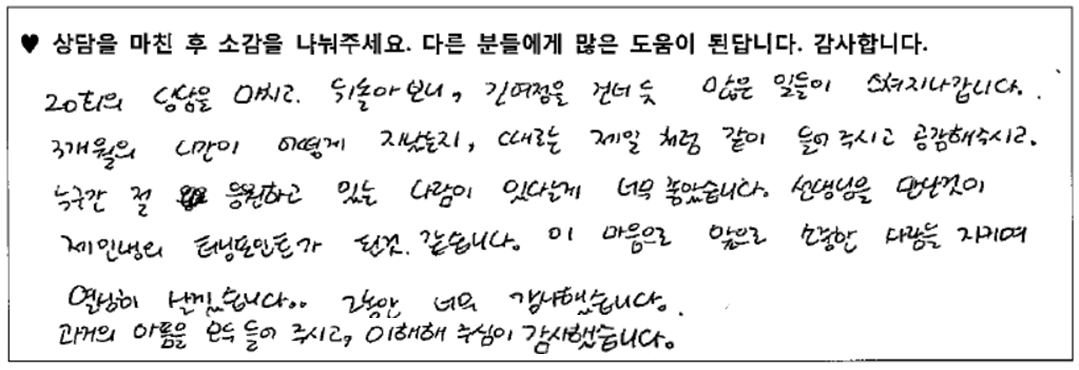 ♥ 상담을 마친 후 소감을 나눠주세요. 다른 분들에게 많은 도움이 된답니다. 감사합니다.
20회의 상담을 마치고. 뒤돌아보니, 긴여정을 건너듯 많은 일들이 스쳐지나갑니다.
3개월의 시간이 어떻게 지났는지, 때로는 제일처럼 같이 들어주시고 공감해주시고.
누군간 절 응원하고 있는 사람이 있다는게 너무 좋았습니다. 선생님을 만난것이
제인생의 터닝포인트가 된것 같습니다. 이 마음으로 앞으로 소중한 사람들 지키며
열심히 살겠습니다.. 그동안 너무 감사했습니다.
과거의 아픔을 모두 들어 주시고, 이해해 주심이 감사했습니다.